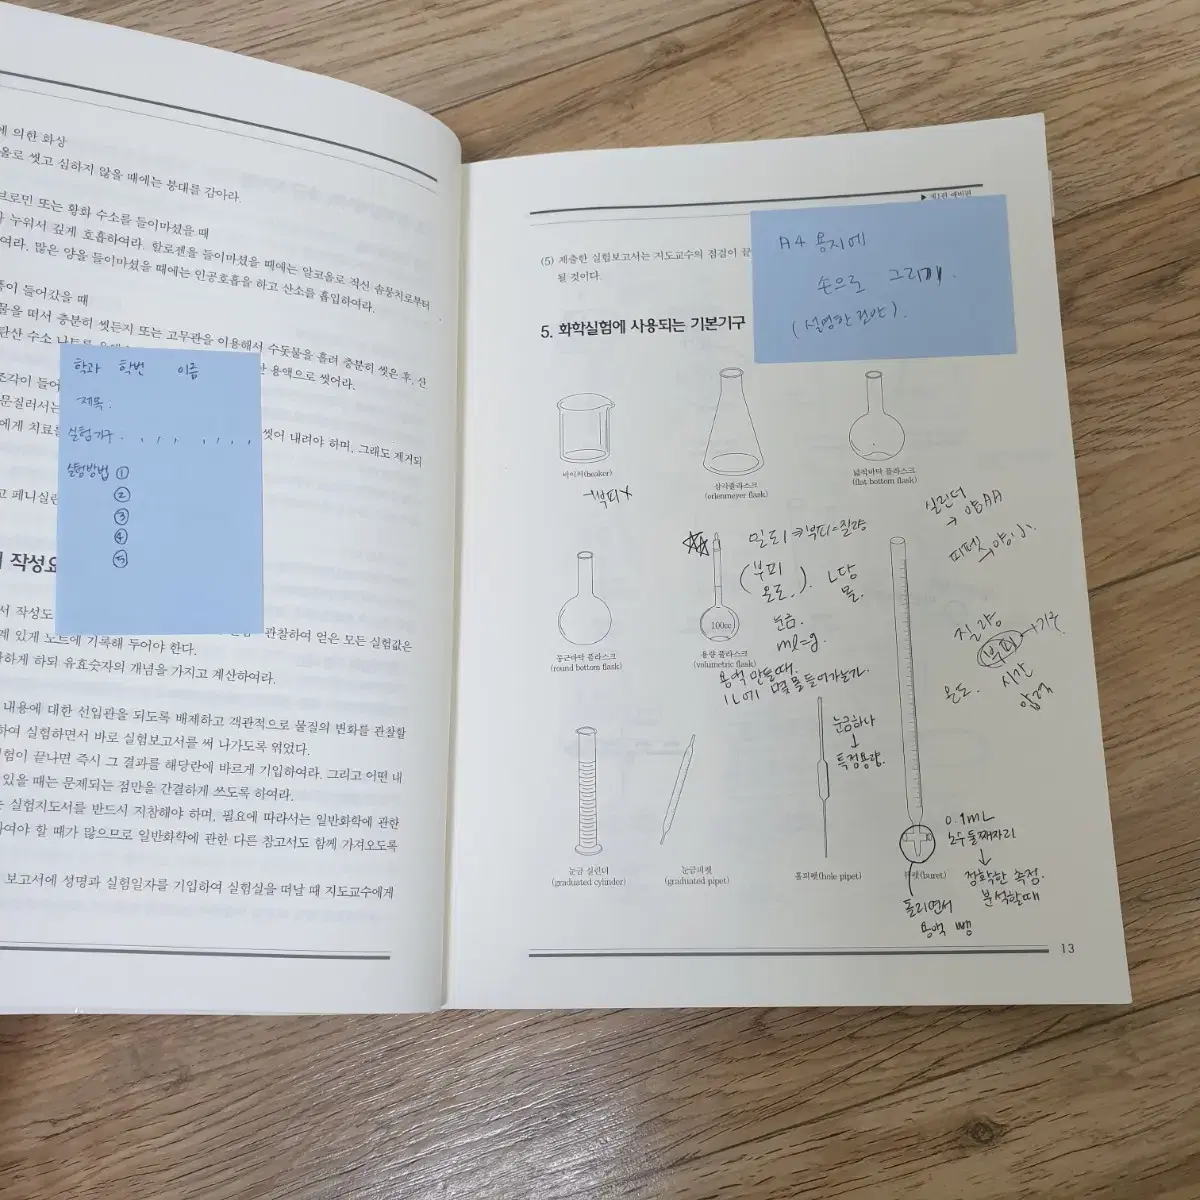 에 의한 화상
올로 씻고 심하지 않을 때에는 붕대를 감아라.
브로민 또는 황화 수소를 들이마셨을 때
누워서 깊게 호흡하여라. 할로젠을 들이마셨을 때에는 알코올로 적신 솜뭉치로부터
여라. 많은 양을 들이마셨을 때에는 인공호흡을 하고 산소를 흡입하여라.
이 들어갔을 때
물을 떠서 충분히 씻든지 또는 고무관을 이용해서 수돗물을 흘려 충분히 씻은 후, 산
탄산 수소 나트륨 용액으로 씻어라.
조각이 들어
문질러서는 씻어 내려야 하며, 그래도 제거되
에게 치료를
고 페니실린
학과 학번 이름
제목.
실험기구. , , , , , , ,
실험방법 ①
②
③
④
⑤
작성요
서 작성도
관찰하여 얻은 모든 실험값은
계 있게 노트에 기록해 두어야 한다.
하게 하되 유효숫자의 개념을 가지고 계산하여라.
내용에 대한 선입관을 되도록 배제하고 객관적으로 물질의 변화를 관찰할
하여 실험하면서 바로 실험보고서를 써 나가도록 엮었다.
험이 끝나면 즉시 그 결과를 해당란에 바르게 기입하여라. 그리고 어떤 내
있을 때는 문제되는 점만을 간결하게 쓰도록 하여라.
는 실험지도서를 반드시 지참해야 하며, 필요에 따라서는 일반화학에 관한
하여야 할 때가 많으므로 일반화학에 관한 다른 참고서도 함께 가져오도록
보고서에 성명과 실험일자를 기입하여 실험실을 떠날 때 지도교수에게
▶ 제1편 예비편
(5) 제출한 실험보고서는 지도교수의 점검이 끝
될 것이다.
A4 용지에
손으로 그리기.
(설명한 것만).
5. 화학실험에 사용되는 기본기구
비이커(beaker)
→부피X
삼각플라스크
(erlenmeyer flask)
넓적바닥 플라스크
(flat bottom flask)
실린더
→ 양AA
피펫→양小
밀도→부피=질량
(부피
온도.)
L당
몰.
눈금.
ml=g.
100cc
둥근바닥 플라스크
(round bottom flask)
용량 플라스크
(volumetric flask)
용액 만들때.
1L에 몇몰 들어가는가.
질량
부피→기구
온도. 시간
압력
눈금하나
↓
특정용량.
눈금 실린더
(graduated cylinder)
눈금피펫
(graduated pipet)
홀피펫(hole pipet)
뷰렛(buret)
0.1mL
소수둘째자리
↓
정확한 측정.
분석할때
돌리면서
용액 뺌
13